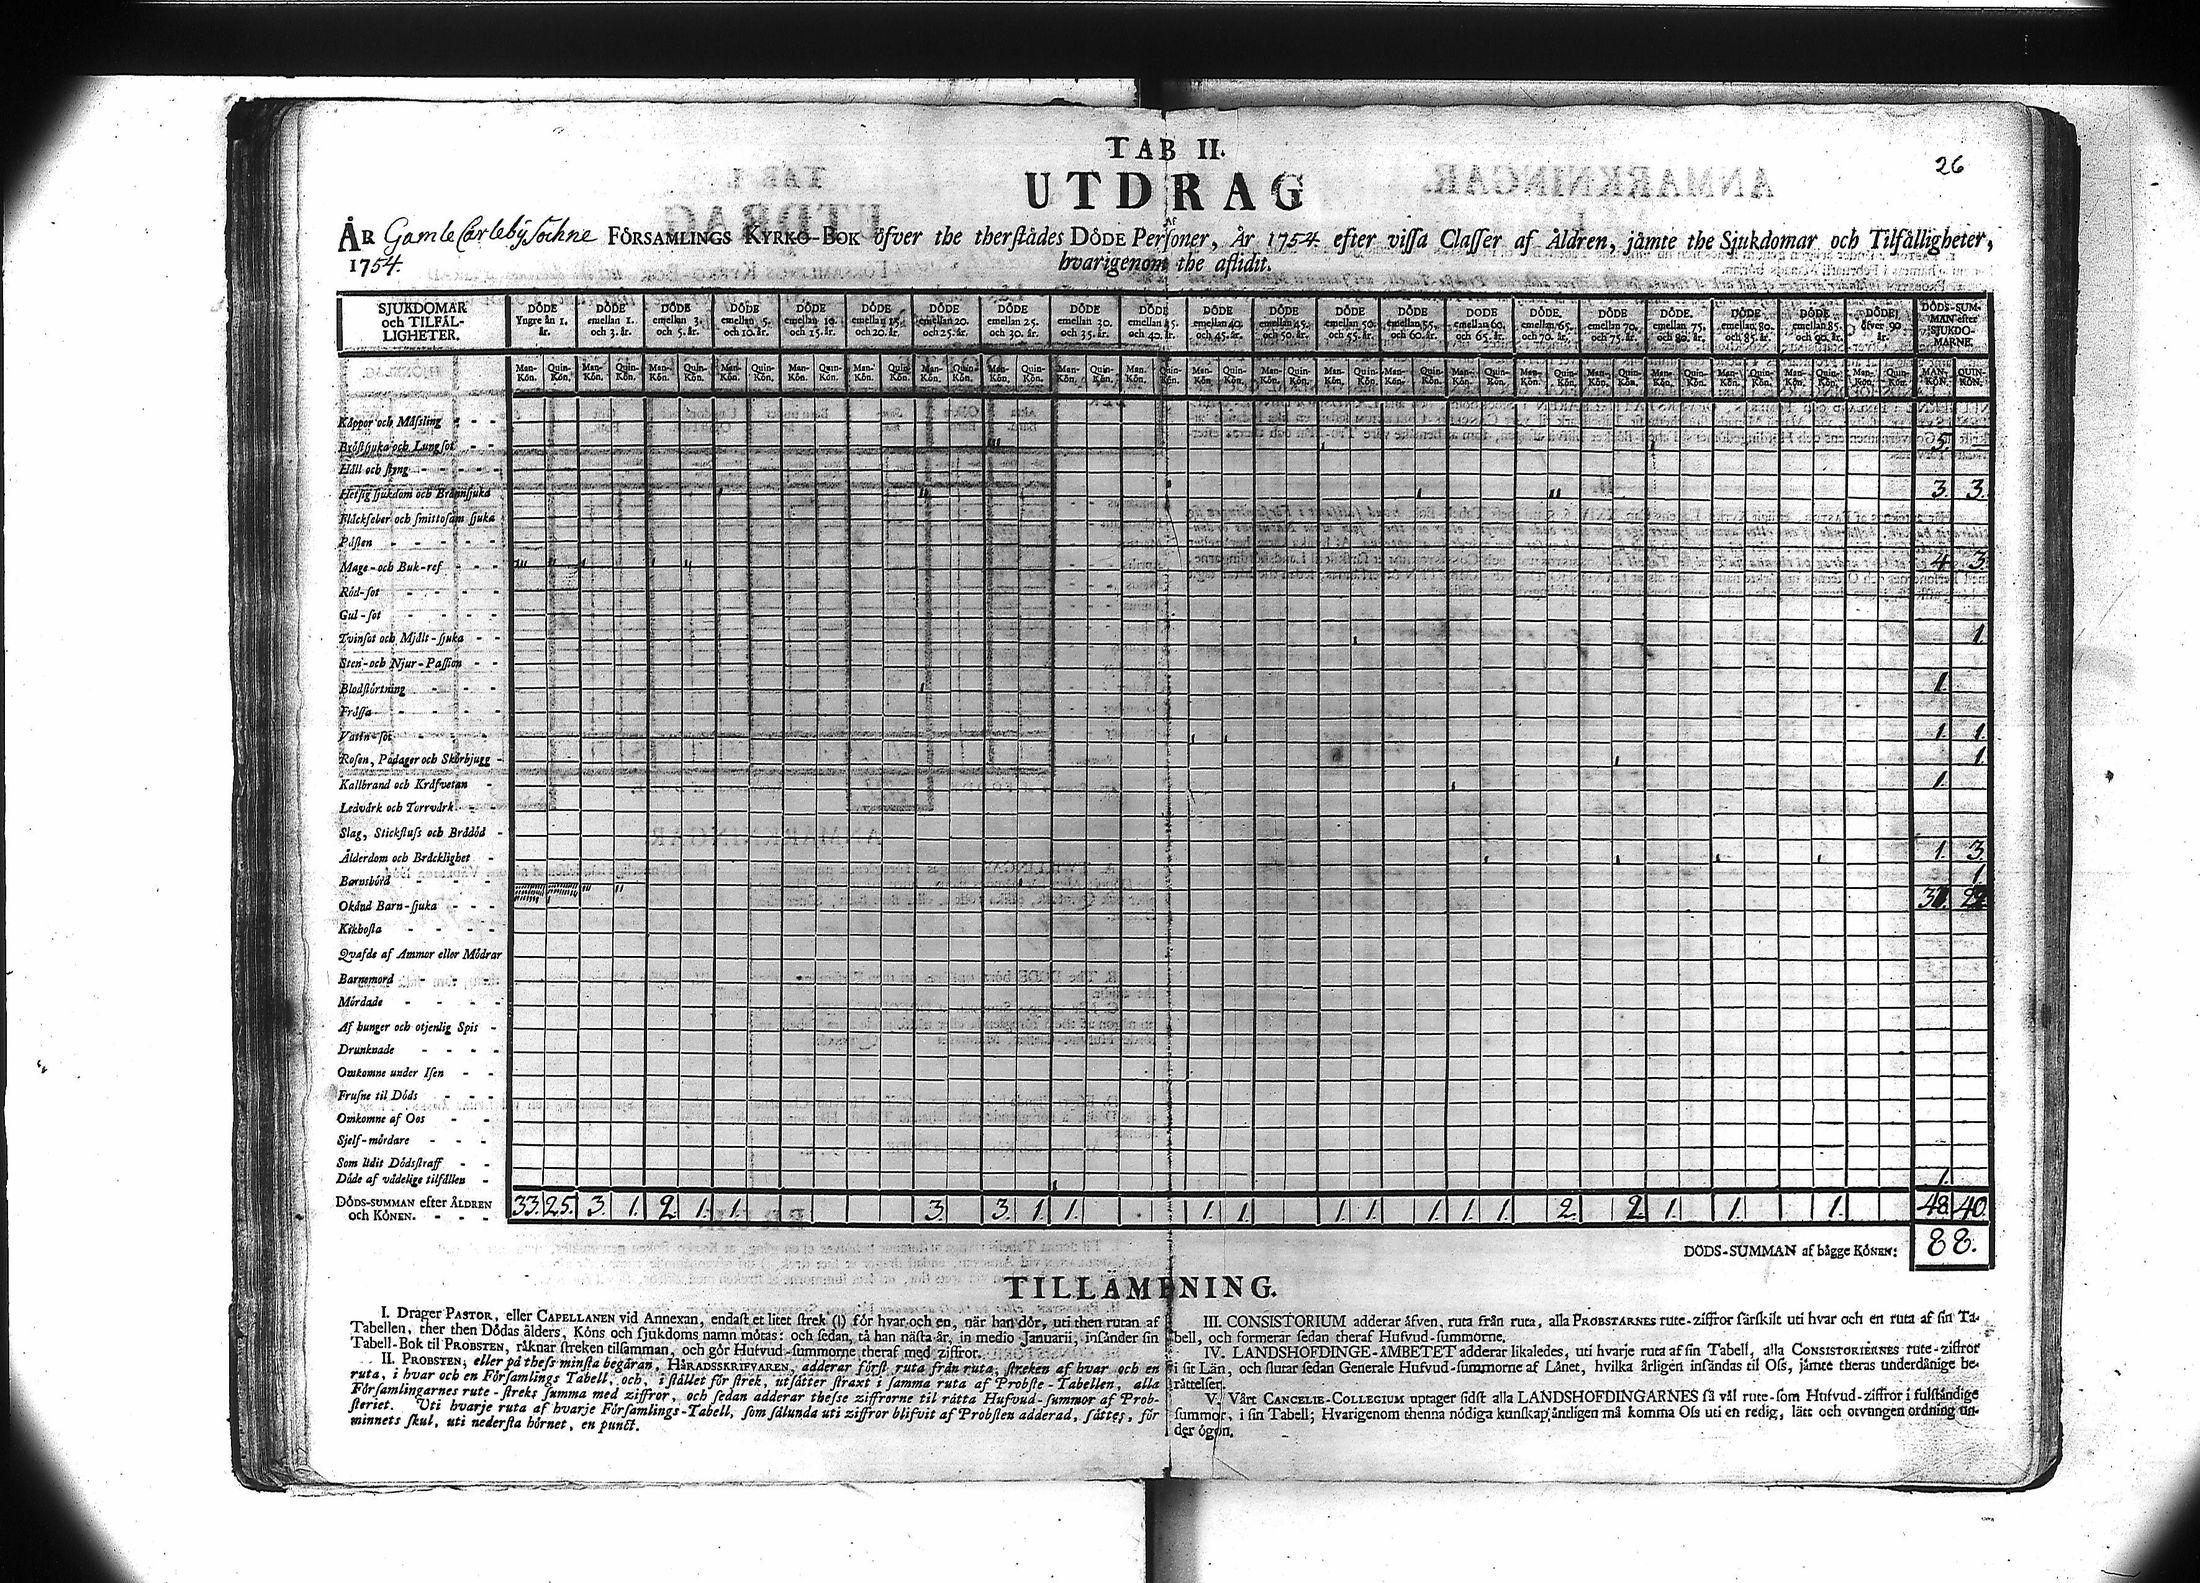 TAB II.
26
UTDRAG
Af
ÅR Gamle Carleby Sochne FÖRSAMLINGS KYRKO-BOK öfver the therstädes DÖDE Personer, År 1754 efter vissa Classer af Åldren, jämte the Sjukdomar och Tilfälligheter,
1754. hvarigenom the aflidit.
SJUKDOMAR och TILFÄL-LIGHETER.
DÖDE Yngre än 1. år.
DÖDE emellan 1. och 3. år.
DÖDE emellan 3. och 5. år.
DÖDE emellan 5. och 10. år.
DÖDE emellan 10. och 15. år.
DÖDE emellan 15. och 20. år.
DÖDE emellan 20. och 25. år.
DÖDE emellan 25. och 30. år.
DÖDE emellan 30. och 35. år.
DÖDE emellan 35. och 40. år.
DÖDE emellan 40. och 45. år.
DÖDE emellan 45. och 50. år.
DÖDE emellan 50. och 55. år.
DÖDE emellan 55. och 60. år.
DÖDE emellan 60. och 65. år.
DÖDE. emellan 65. och 70. år.
DÖDE emellan 70. och 75. år.
DÖDE. emellan 75. och 80. år.
DÖDE emellan 80. och 85. år.
DÖDE emellan 85. och 90. år.
DÖDE öfver 90 år.
DÖDS-SUM-MAN efter SJUKDO-MARNE.
Man-Kön. Quin-Kön. Man-Kön. Quin-Kön. Man-Kön. Quin-Kön. Man-Kön. Quin-Kön. Man-Kön. Quin-Kön. Man-Kön. Quin-Kön. Man-Kön. Quin-Kön. Man-Kön. Quin-Kön. Man-Kön. Quin-Kön. Man-Kön. Quin-Kön. Man-Kön. Quin-Kön. Man-Kön. Quin-Kön. Man-Kön. Quin-Kön. Man-Kön. Quin-Kön. Man-Kön. Quin-Kön. Man-Kön. Quin-Kön. Man-Kön. Quin-Kön. Man-Kön. Quin-Kön. Man-Kön. Quin-Kön. Man-Kön. Quin-Kön. Man-Kön. Quin-Kön. MAN-KÖN. QUIN-KÖN.
Koppor och Mässling - - -
Bröstsjuka och Lungsot - - 5.
Håll och styng - - - -
Hetsig sjukdom och Brännsjuka 3. 3.
Fläckfeber och smittosam sjuka
Påsten - - - - -
Mage- och Buk-ref - - - 4. 3.
Röd-sot - - - -
Gul-sot - - - -
Tvinsot och Mjält-sjuka - - 1.
Sten- och Njur-Passion - -
Blodstörtning - - - 1.
Frossa - - - -
Vattn-sot - - - 1. 1.
Rosen, Pådager och Skörbjugg - 1.
Kallbrand och Kräfvetan - 1.
Ledvärk och Torrvärk - -
Slag, Stickfluss och Brådöd -
Ålderdom och Bräcklighet - 1. 3.
Barnsbörd - - - - 1.
Okänd Barn-sjuka - - -
Kikhosta - - - -
Qvafde af Ammor eller Mödrar
Barnemord - - - -
Mördade - - - -
Af hunger och otjenlig Spis -
Drunknade - - - -
Omkomne under Isen - -
Frusne til Döds - - -
Omkomne af Oos - -
Sjelf-mördare - - -
Som lidit Dödsstraff - -
Döde af vådelige tilfällen - 1.
DÖDS-SUMMAN efter ÅLDREN och KÖNEN. - - - 33. 25. 3. 1. 2. 1. 1. 3. 3. 1. 1. 1. 1. 1. 1. 1. 1. 1. 2. 2. 1. 1. 1. 48. 40.
DÖDS-SUMMAN af bägge KÖNEN: 88.
TILLÄMPNING.
I. Drager PASTOR, eller CAPELLANEN vid Annexan, endast et litet strek (|) för hvar och en, när han dör, uti then rutan af
Tabellen, ther then Dödas ålders, Köns och sjukdoms namn mötas: och sedan, tå han nästa år, in medio Januarii, insänder sin
Tabell-Bok til PROBSTEN, räknar streken tilsamman, och gör Hufvud-summorne theraf med ziffror.
II. PROBSTEN, eller på thess minsta begäran, HÄRADSSKRIFVAREN, adderar först, ruta från ruta, streken af hvar och en
ruta, i hvar och en Församlings Tabell, och, i stället för strek, utsätter straxt i samma ruta af Probste-Tabellen, alla
Församlingarnes rute-streks summa med ziffror, och sedan adderar thesse ziffrorne til rätta Hufvud-summor af Prob-
steriet. Uti hvarje ruta af hvarje Församlings-Tabell, som sålunda uti ziffror blifvit af Probsten adderad, sättes, för
minnets skul, uti nedersta hörnet, en punct.
III. CONSISTORIUM adderar äfven, ruta från ruta, alla PROBSTARNES rute-ziffror särskilt uti hvar och en ruta af sin Ta-
bell, och formerar sedan theraf Hufvud-summorne.
IV. LANDSHOFDINGE-ÄMBETET adderar likaledes, uti hvarje ruta af sin Tabell, alla CONSISTORIERNES rute-ziffror
i sit Län, och slutar sedan Generale Hufvud-summorne af Länet, hvilka årligen insändas til Oss, jämte theras underdånige be-
rättelser.
V. Vårt CANCELIE-COLLEGIUM uptager sidst alla LANDSHOFDINGARNES så väl rute- som Hufvud-ziffror i fulständige
summor, i sin Tabell; Hvarigenom thenna nödiga kunskap äntligen må komma Oss uti en redig, lätt och otvungen ordning un-
der ögon.